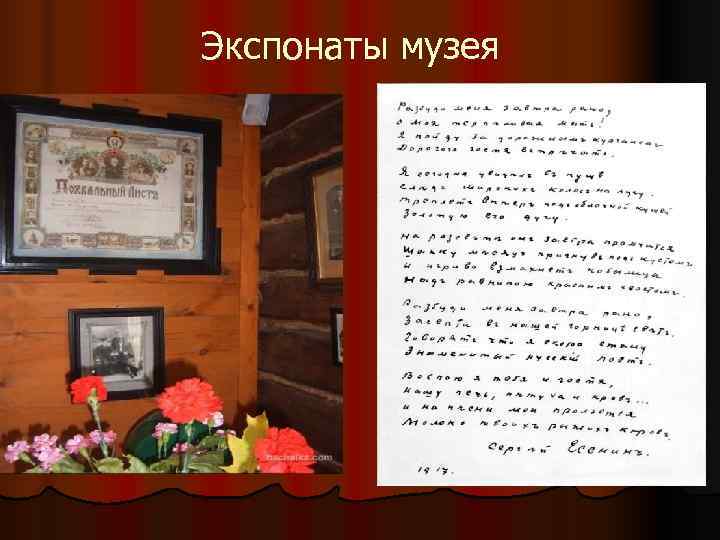 Экспонаты музея
Похвальный Листъ
Разбуди меня завтра рано,
О моя терпеливая мать!
Я пойду за дорожнымъ курганомъ
Дорогого гостя встрѣчать.
Я сегодня увидѣлъ въ пущѣ
Слѣдъ широкихъ колесъ на лугу.
Треплетъ вѣтеръ подъ облачной кущей
Золотую его дугу.
На разсвѣтѣ онъ завтра промчится
Шапку мѣсяцъ пригнувъ подъ кустомъ
И игриво взмахнетъ кобылица
Надъ равниною краснымъ хвостомъ.
Разбуди меня завтра рано,
Засвѣти въ нашей горницѣ свѣтъ.
Говорятъ что я скоро стану
Знаменитый русскій поэтъ.
Воспою я тебя и гостя,
Нашу печь, пѣтуха и кровъ...
И на пѣсни мои прольется
Молоко твоихъ рыжихъ коровъ.
Сергѣй Есенинъ.
1917.